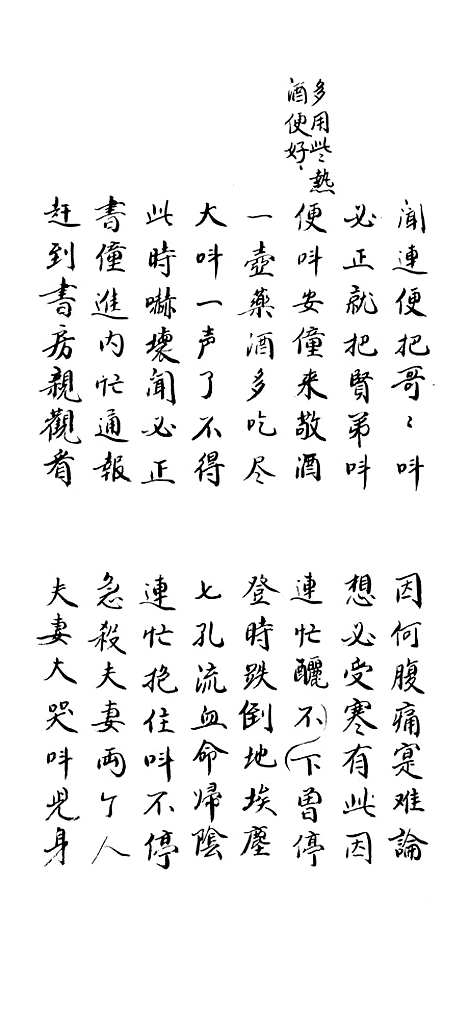 聞連便把哥〻叫 因何腹痛寔难論
必正就把賢弟叫 想必受寒有此因
多用些熱
酒便好
便叫安僮来敬酒 連忙釃不下曾停
一壺藥酒多吃尽 登時跌倒地埃塵
大叫一声了不得 七孔流血命歸陰
此時嚇壞聞必正 連忙抱住叫不停
書僮進内忙通報 急殺夫妻両个人
赶到書房親觀看 夫妻大哭叫児身